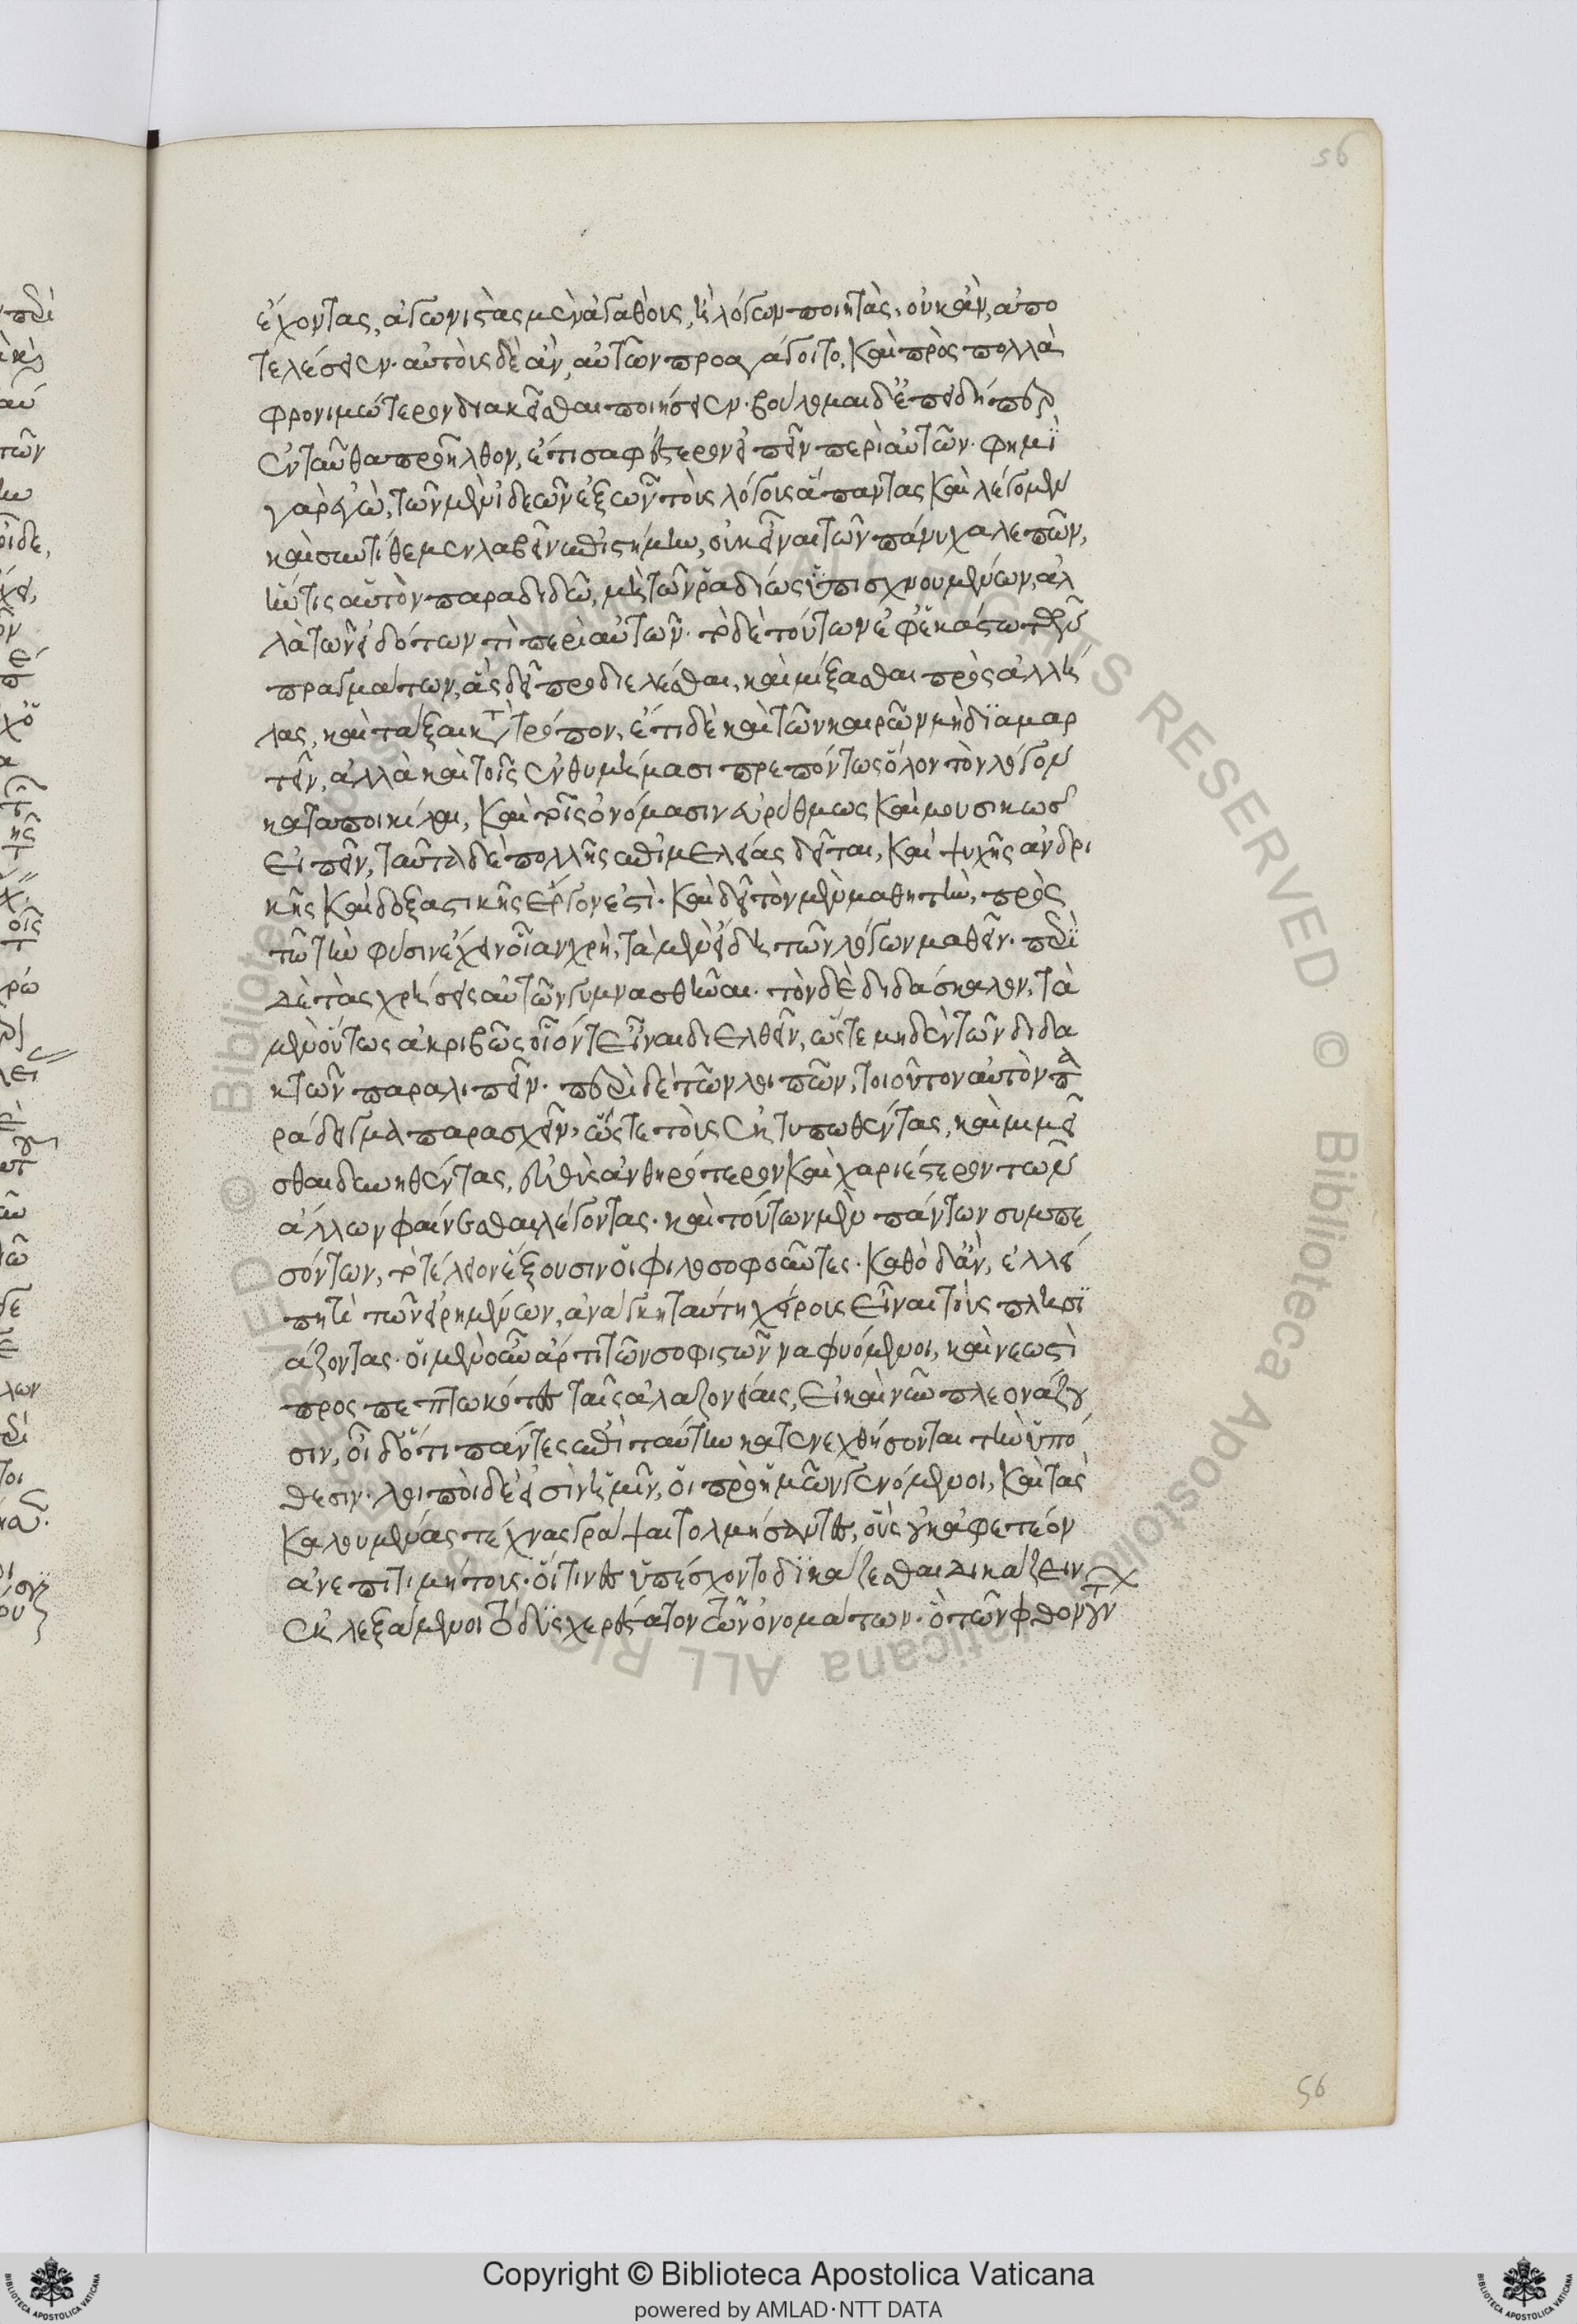 56
ἔχοντας, ἀγωνιστὰς μὲν ἀγαθοὺς, ἢ λόγων ποιητὰς, οὐκ ἂν, ἀπο
τελέσειεν. αὐτοὺς δὲ ἂν, αὐτῶν προαγάγοιτο, καὶ πρὸς πολλὰ
φρονιμώτερον διακεῖσθαι ποιήσειεν. βούλομαι δ' ἐπειδήπερ
ἐνταῦθα προῆλθον, ἔτι σαφέστερον εἰπεῖν περὶ αὐτῶν. φημὶ
γὰρ ἐγὼ, τῶν μὲν ἰδεῶν ἐξ ὧν τοὺς λόγους ἅπαντας καὶ λέγομεν
καὶ συντίθεμεν λαβεῖν ἐπιστήμην, οὐκ εἶναι τῶν πάνυ χαλεπῶν,
ἤν τις αὑτὸν παραδιδῶ, μὴ τῶν ῥᾳδίως ὑπισχνουμένων, ἀλ
λὰ τῶν εἰδότων τὶ περὶ αὐτῶν. τὸ δὲ τούτων ἐφ' ἑκάστω τῶν
πραγμάτων, ἃς δεῖ προδιελέσθαι, καὶ μίξασθαι πρὸς ἀλλή
λας, καὶ τάξαι κατὰ τρόπον, ἔτι δὲ καὶ τῶν καιρῶν μὴ διαμαρ
τεῖν, ἀλλὰ καὶ τοῖς ἐνθυμήμασι πρεπόντως ὅλον τὸν λόγον
καταποικίλαι, καὶ τοῖς ὀνόμασιν εὐρύθμως καὶ μουσικῶς
εἰπεῖν, ταῦτα δὲ πολλῆς ἐπιμελείας δεῖται, καὶ ψυχῆς ἀνδρι
κῆς καὶ δοξαστικῆς ἔργον ἐστὶ. καὶ δεῖ τὸν μὲν μαθητὴν, πρὸς
τῶ τὴν φύσιν ἔχειν οἵαν χρὴ, τὰ μὲν εἴδη τῶν λόγων μαθεῖν. περὶ
δὲ τὰς χρήσεις αὐτῶν γυμνασθῆναι. τὸν δὲ διδάσκαλον, τὰ
μὲν οὕτως ἀκριβῶς οἷόντ' εἶναι διελθεῖν, ὥστε μηδὲν τῶν διδα
κτῶν παραλιπεῖν. περὶ δὲ τῶν λοιπῶν, τοιοῦτον αὑτὸν πα
ράδειγμα παρασχεῖν, ὥστε τοὺς ἐκτυπωθέντας, καὶ μιμεῖ
σθαι δυνηθέντας, εὐθὺς ἀνθηρότερον καὶ χαριέστερον τῶν
ἄλλων φαίνεσθαι λέγοντας. καὶ τούτων μὲν πάντων συμπε
σόντων, τὸ τέλειον ἕξουσιν οἱ φιλοσοφοῦντες. καθὸ δ' ἂν, ἐλλεί
πη τὶ τῶν εἰρημένων, ἀνάγκη ταύτη χείρους εἶναι τοὺς πλησι
άζοντας. οἱ μὲν οὖν ἄρτι τῶν σοφιστῶν ἀναφυόμενοι, καὶ νεωστὶ
προσπεπτωκότες ταῖς ἀλαζονείαις, εἰ καὶ νῦν πλεονάζου
σιν, οἶδ' ὅτι πάντες ἐπὶ ταύτην κατενεχθήσονται τὴν ὑπό
θεσιν. λοιποὶ δ' εἰσὶν ἡμῖν, οἱ πρὸ ἡμῶν γενόμενοι, καὶ τὰς
καλουμένας τέχνας γράψαι τολμήσαντες, οὓς οὐκ ἀφετέον
ἀνεπιτιμήτους. οἵτινες ὑπέσχοντο δικάζεσθαι διδάξειν
ἐκλεξάμενοι τὸ δυσχερέστατον τῶν ὀνομάτων. ὃ τῶν φθονούν
56
Copyright © Biblioteca Apostolica Vaticana
powered by AMLAD·NTT DATA